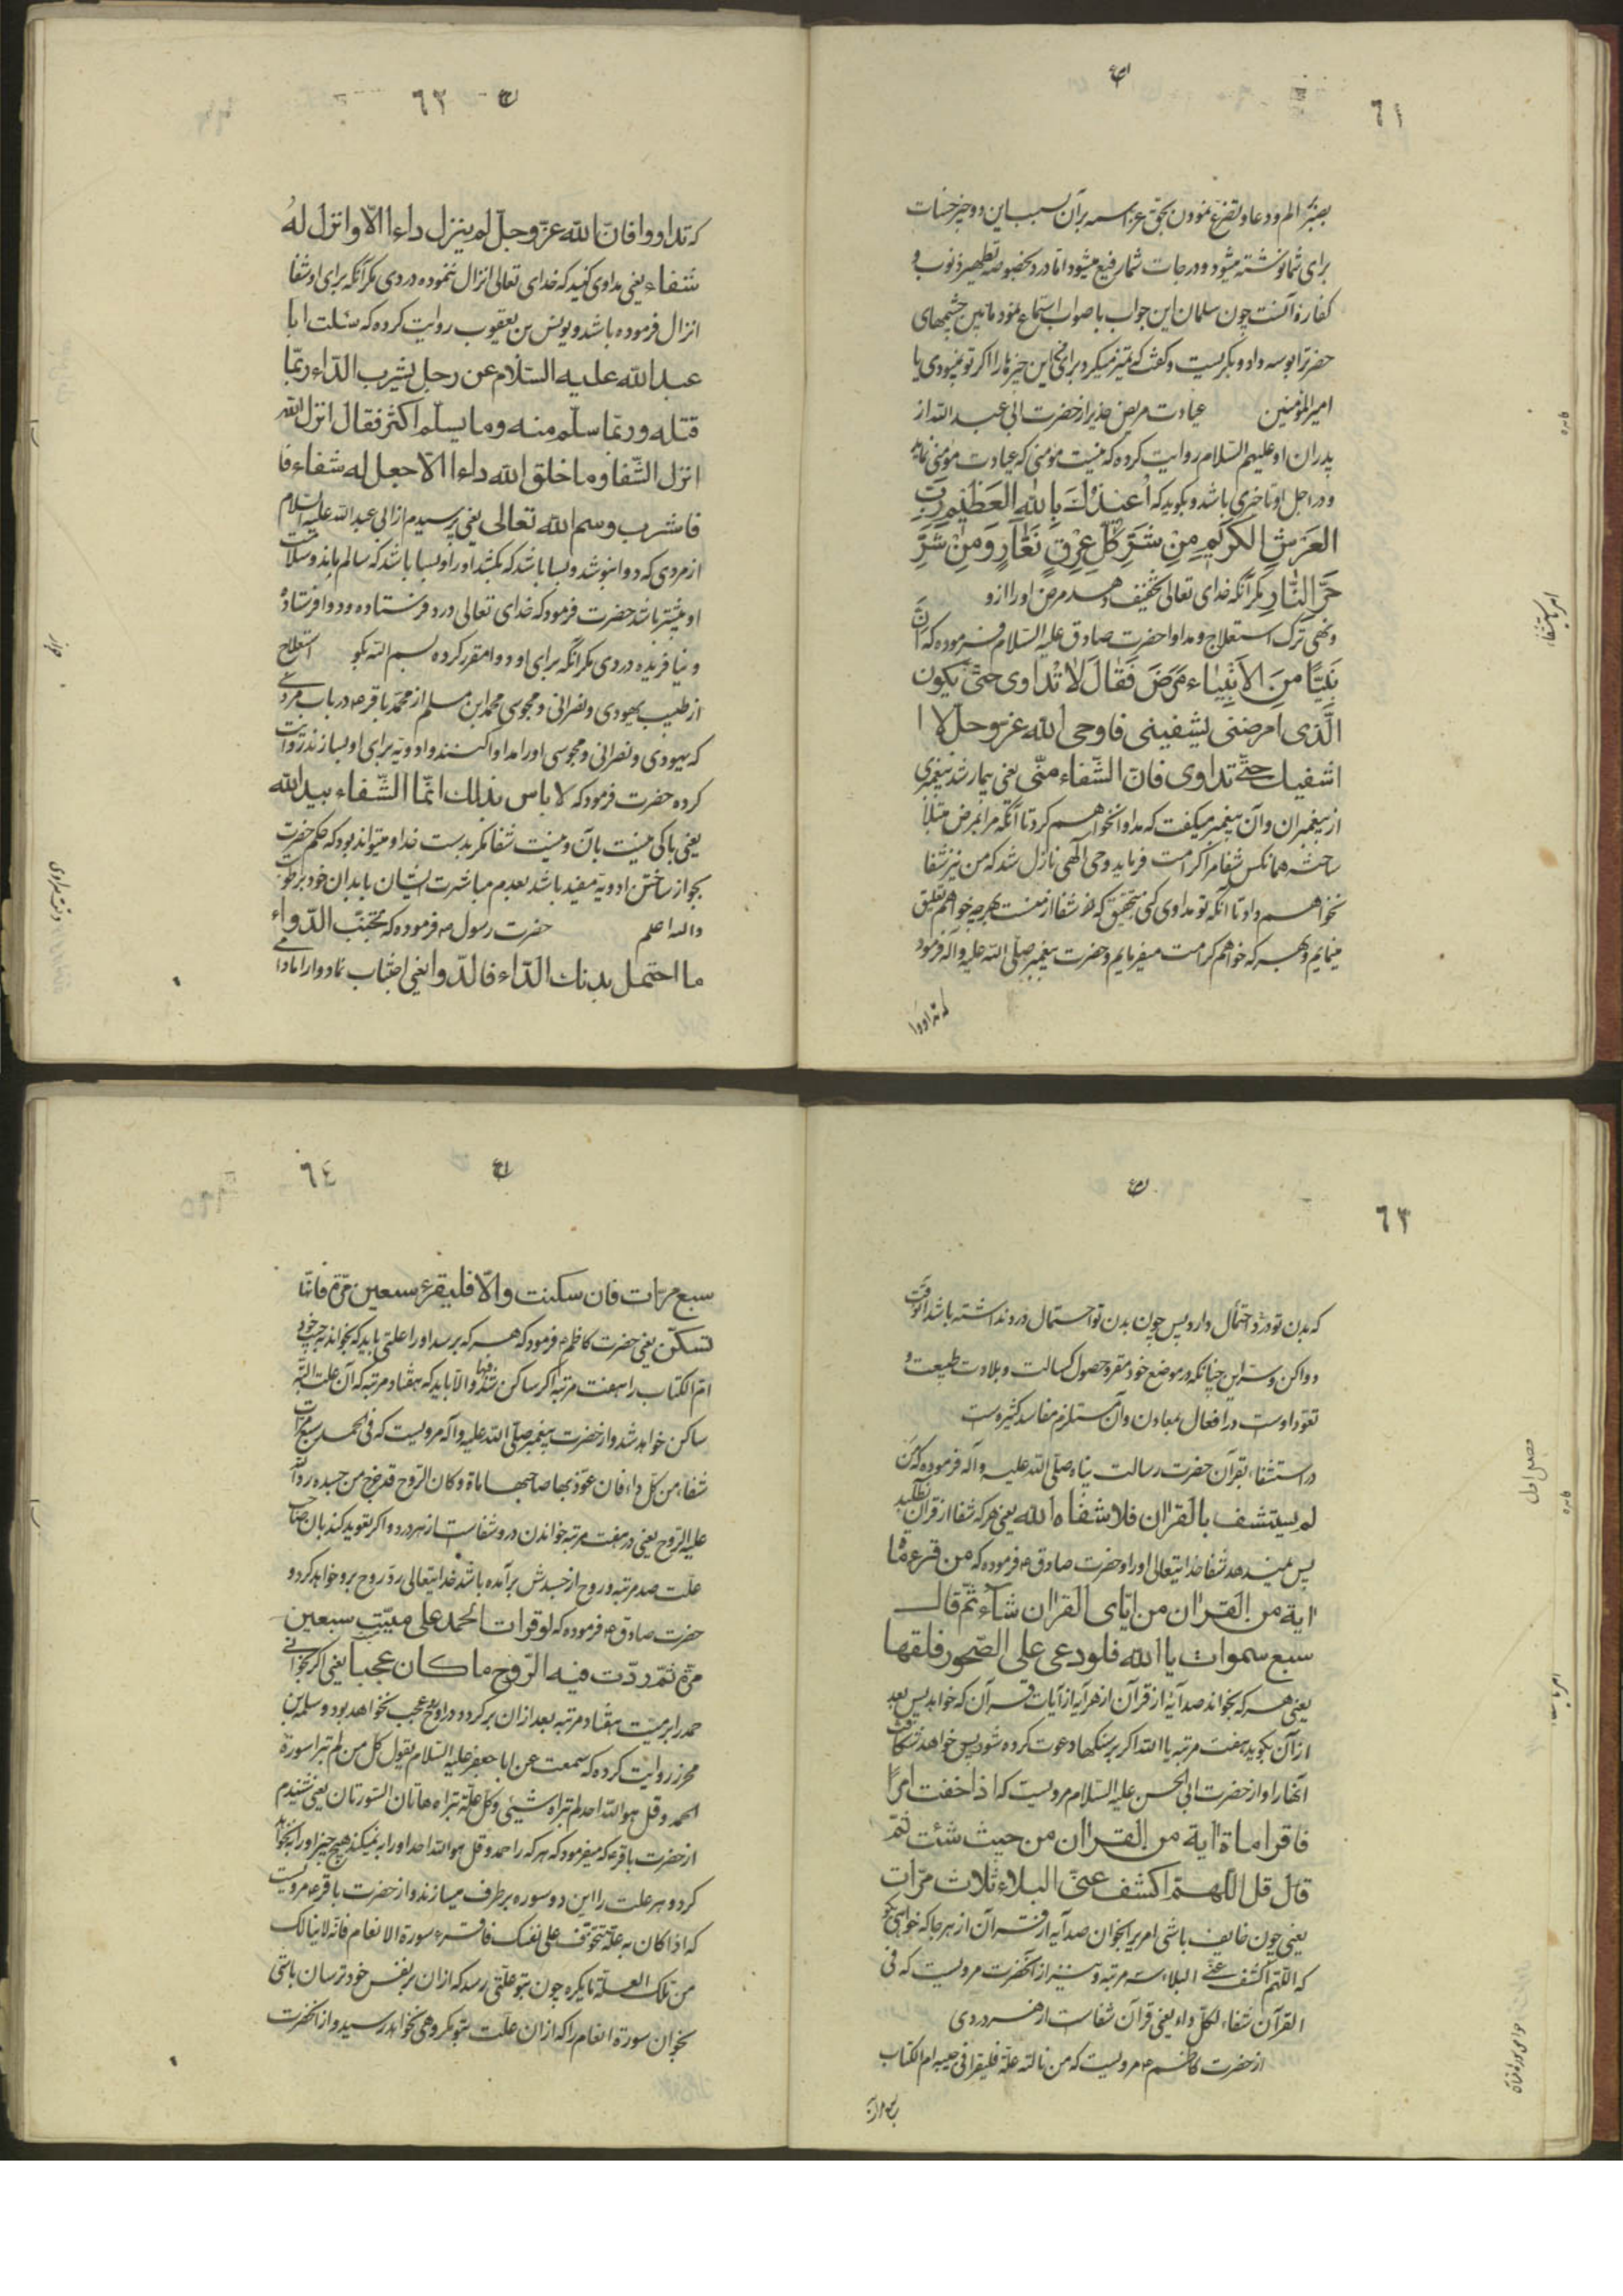 ٦١
بصبر الم و دعا و تضرع نمودن بحق عز اسمه بر آن بسبب این دو چیز حسنات
برای شما نوشته میشود و درجات شما رفیع میشود اما درد بخصوصه تطهیر ذنوب و
کفارهٔ آنست چون سلمان این جواب با صواب استماع نمود مابین چشمهای
حضرترا بوسه داد و بگریست و گفت که تمیز میکرد برای ما این چیزها را اگر تو نمیبودی یا
امیر المؤمنین عیادت مریض از حضرت ابی عبد الله از
پدران او علیهم السلام روایت کرده که نیست مؤمنی که عیادت مؤمنی نماید
و در اجل او تاخیری باشد و بگوید که اُعیذُكَ بِاللهِ العَظیمِ رَبِّ
العَرشِ الکَریمِ مِن شَرِّ کُلِّ عِرقٍ نَعّارٍ وَمِن شَرِّ
حَرِّ النّارِ مگر آنکه خدای تعالی تخفیف دهد مرض او را ازو
و نهی ترک استعلاج و مداوا حضرت صادق علیه السلام فرموده که اَنَّ
نَبِیًّا مِنَ الاَنبِیاء مَرَضَ فَقالَ لا تَداوی حتّی یکون
الّذی امرضنی یشفینی فاوحی الله عز وجل لا ا
اشفیك حتّی تداوی فانّ الشّفاء منّی یعنی بیمار شد پیغمبری
از پیغمبران و آن پیغمبر میگفت که مداوا نخواهم کرد تا آنکه مرا بمرض مبتلا
ساخته همانکس شفا مرا کرامت فرماید وحی آلهی نازل شد که من نیز شفا
نخواهم داد تا آنکه تو مداوی کنی بتحقیق که شفا از منست بهرچه خواهم تعلیق
مینمایم و بهر که خواهم کرامت میفرمایم و حضرت پیغمبر صلی الله علیه و آله فرمود
که تداووا
امر باستشفاء
٦٢
که تداووا فانّ الله عزّ وجلّ لم ینزل داءا الاّ وانزل لهُ
شفاء یعنی مداوی کنید که خدای تعالی انزال ننموده دردی مگر آنکه برای او شفا
انزال فرموده باشد و یونس بن یعقوب روایت کرده که سئلت ابا
عبد الله علیه السّلام عن رجل یشرب الدّاء ربّما
قتله وربّما سلم منه وما یسلم اکثر فقال انزل الله
انزل الشّفا وما خلق الله داءا الاّ جعل له شفاء فا
فاشرب وسم الله تعالی یعنی پرسیدم از ابی عبد الله علیه السلام
از مردی که دوا بنوشد و بسا باشد که بکشد او را و بسا باشد که سالم بماند و سلامت
او بیشتر باشد حضرت فرمود که خدای تعالی درد فرستاده و دوا فرستاده
و نیافریده دردی مگر آنکه برای او دوا مقرر کرده بسم الله بگو استعلاج
از طبیب یهودی و نصرانی و مجوسی محمد ابن مسلم از محمد باقر ع در باب مردی
که یهودی و نصرانی و مجوسی او را مداوا کنند و ادویه برای او بسازند روایت
کرده حضرت فرمود که لا باس بذلك انّما الشّفاء بید الله
یعنی باکی نیست بآن و نیست شفا مگر بدست خدا و میتواند بود که حکم حضرت
بجواز ساختن ادویه مفید باشد بعدم مباشرت ایشان بابدان خود برطوبت
والله اعلم حضرت رسول ص فرموده که تجنّب الدّواء
ما احتمل بدنك الدّاء فالدّوا یعنی اجتناب نما دوا را مادامی
٦٣
که بدن تو درد را احتمال دارد پس چون بدن تو احتمال درد نداشته باشد آنوقت
دوا کن و سر این چنانکه در موضع خود مقرر حصول کسالت و بلادت طبیعت و
تعود اوست در افعال بمعاون و آن مستلزم مفاسد کثیره است
در استشفاء بقرآن حضرت رسالت پناه صلی الله علیه و آله فرموده که مَن
لم یستشف بالقران فلا شفاه الله یعنی هر که شفا از قرآن نطلبد
پس نمیدهد شفا خدایتعالی او را و حضرت صادق ع فرموده که من قرء مأة
ایة من القران من ایّای القران شاء ثمّ قال
سبع سموات یا الله فلو دعی علی الصّخور فلقها
یعنی هر که بخواند صد آیه از قرآن از هر آیه از آیات قرآن که خواهد پس بعد
از آن بگوید هفت مرتبه یا الله اگر بر سنگها دعوت کرده شود پس خواهد شکافت
آنها را و از حضرت ابی الحسن علیه السلام مرویست که اذا خفت امرًا
فاقرا ماة ایة من القران من حیث شئت ثمّ
قال قل اللّهمّ اکشف عنّی البلاء ثلاث مرّات
یعنی چون خایف باشی امریرا بخوان صد آیه از قرآن از هر جا که خواهی بگو
که اللّهمّ اکشف عنّی البلاء سه مرتبه و نیز از آنحضرت مرویست که فی
القرآن شفاء لکلّ داء یعنی قرآن شفاست از هر دردی
از حضرت کاظم ع مرویست که من نالته علّة فلیقرا فی جیبه ام الکتاب
سبع مرات
فصل اول
٦٤
سبع مرّات فان سکنت والاّ فلیقرء سبعین مرّة فانّها
تسکن یعنی حضرت کاظم ع فرمود که هر که برسد او را علتی باید که بخواند بجیب خود
ام الکتاب را هفت مرتبه اگر ساکن شد فبها والا باید که هفتاد مرتبه که آن علت البته
ساکن خواهد شد و از حضرت پیغمبر صلی الله علیه و آله مرویست که فی الحمد سبع مرّات
شفاء من کلّ داء فان عوّذ بها صاحبها ماة وکان الرّوح قد خرج من جسده ردّ الله
علیه الرّوح یعنی در هفت مرتبه خواندن در و شفاست از هر درد و اگر تعوید کند بآن صاحب
علت صد مرتبه و روح از جسدش برآمده باشد خدایتعالی رد روح برو خواهد کرد و
حضرت صادق ع فرموده که لو قرات الحمد علی میّتٍ سبعین
مرّة ثمّ ردّت فیه الرّوح ما کان عجبا یعنی اگر بخوانی
حمد را بر میت هفتاد مرتبه بعد از آن بر گردد در او روح عجب نخواهد بود و سلمة بن
محرز روایت کرده که سمعت عن ابا جعفر علیه السلام یقول کل من لم تبراه سورة
الحمد و قل هو الله احد لم تبراه شیئی و کل علّة تبراه هاتان السّورتان یعنی شنیدم
از حضرت باقر ع که میفرمود که هر که را حمد و قل هو الله احد او را به نمیکند هیچ چیز او را به نخواهد
کرد و هر علت را این دو سوره برطرف میسازند و از حضرت باقر ع مرویست
که اذا کان به علّة تتخوّف علی نفسك فاقرء سورة الانعام فانّه لا ینالك
من تلك العلّة ما یکره چون بتو علتی رسد که از آن بر نفس خود ترسان باشی
بخوان سورهٔ انعام را که از آن علت بتو مکروهی نخواهد رسید و از آنحضرت